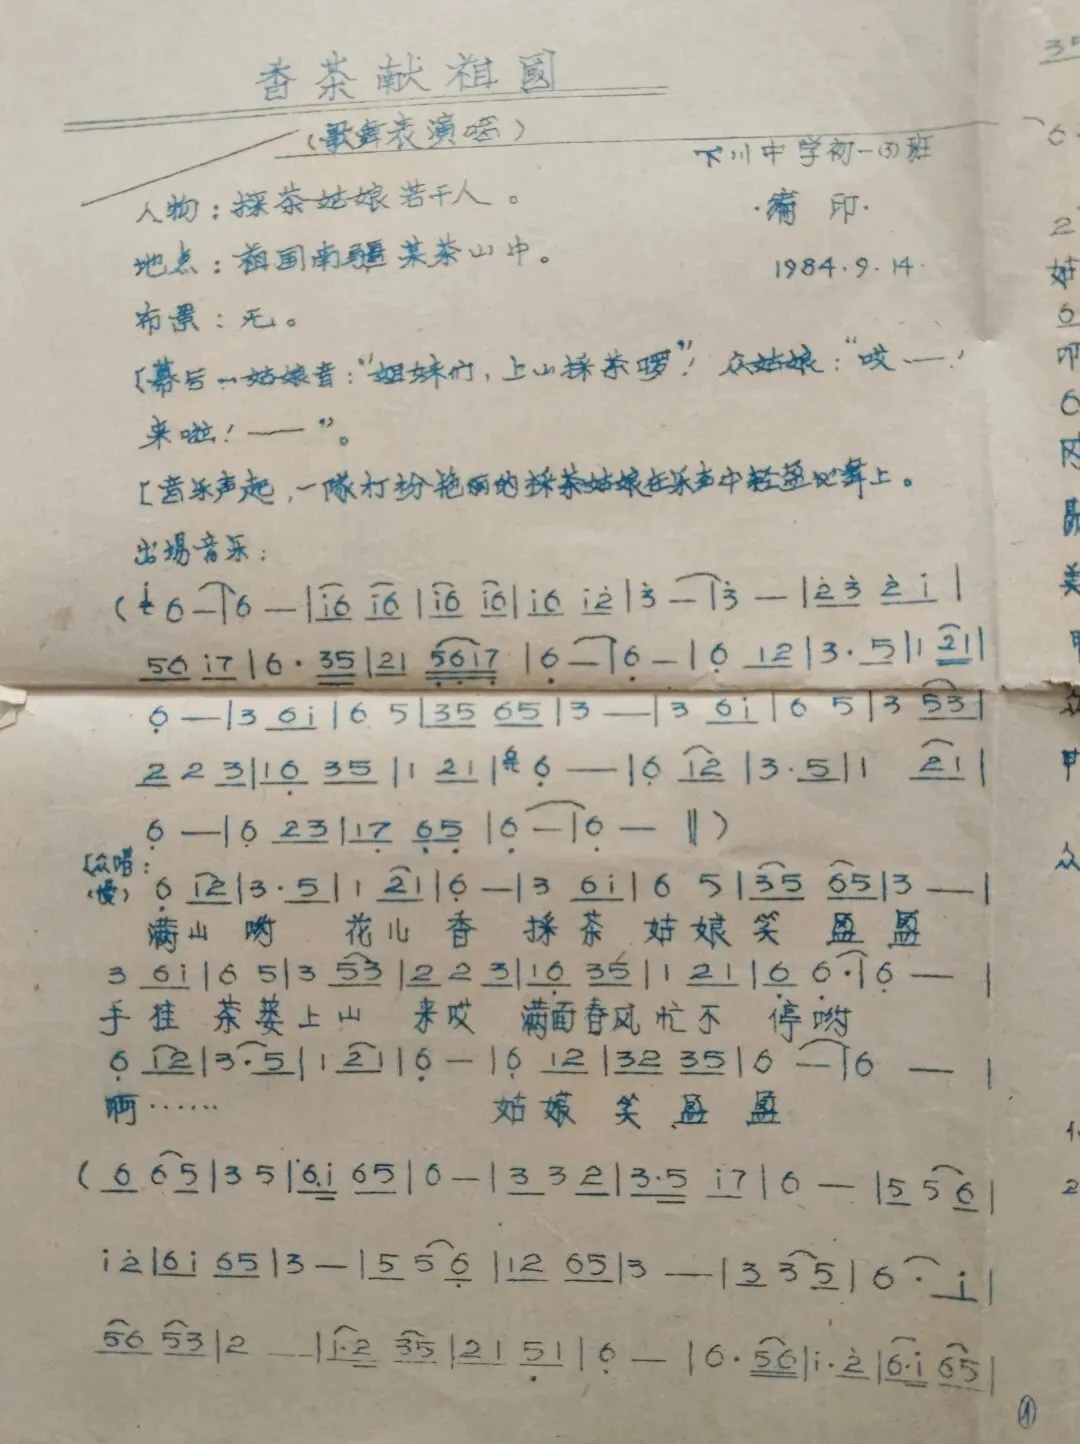 香茶献祖國
（歌舞表演唱）
下川中学初一(3)班
人物：採茶姑娘若干人。
·翻印·
地点：祖国南疆某茶山中。
1984.9.14.
布景：无。
〔幕后一姑娘音：“姐妹们，上山採茶啰”！ 众姑娘：“哎——！
来啦！——”。
〔音乐声起，一隊打扮艳丽的採茶姑娘在乐声中轻盈地舞上。
出場音乐：
6 — | 6 — | i6 i6 | i6 i6 | i6 i2 | 3 — | 3 — | 23 2 i |
56 i7 | 6 · 35 | 21 5617 | 6 — | 6 — | 6 12 | 3 · 5 | 1 21 |
6 — | 3 6i | 6 5 | 35 65 | 3 — | 3 6i | 6 5 | 3 53 |
2 2 3 | 16 35 | 1 21 | 6 — | 6 12 | 3 · 5 | 1 21 |
6 — | 6 23 | 17 65 | 6 — | 6 — ‖）
〔众唱：
（慢） 6 12 | 3 · 5 | 1 21 | 6 — | 3 6i | 6 5 | 35 65 | 3 — |
满山 哟 花儿 香 採茶 姑娘笑 盈盈
3 6i | 6 5 | 3 53 | 2 2 3 | 16 35 | 1 21 | 6 6 · | 6 — |
手挂 茶蒌上山 来哎 满面春风忙不 停哟
6 12 | 3 · 5 | 1 21 | 6 — | 6 12 | 32 35 | 6 — | 6 — |
啊…… 姑娘 笑 盈 盈
（ 6 6 5 | 3 5 | 6·i 65 | 6 — | 3 3 2 | 3·5 i7 | 6 — | 5 5 6 |
i 2 | 6i 65 | 3 — | 5 5 6 | 12 65 | 3 — | 3 3 5 | 6 · i |
56 53 | 2 — | 1·2 35 | 21 51 | 6 — | 6 · 56 | i · 2 | 6·i 65 |
①